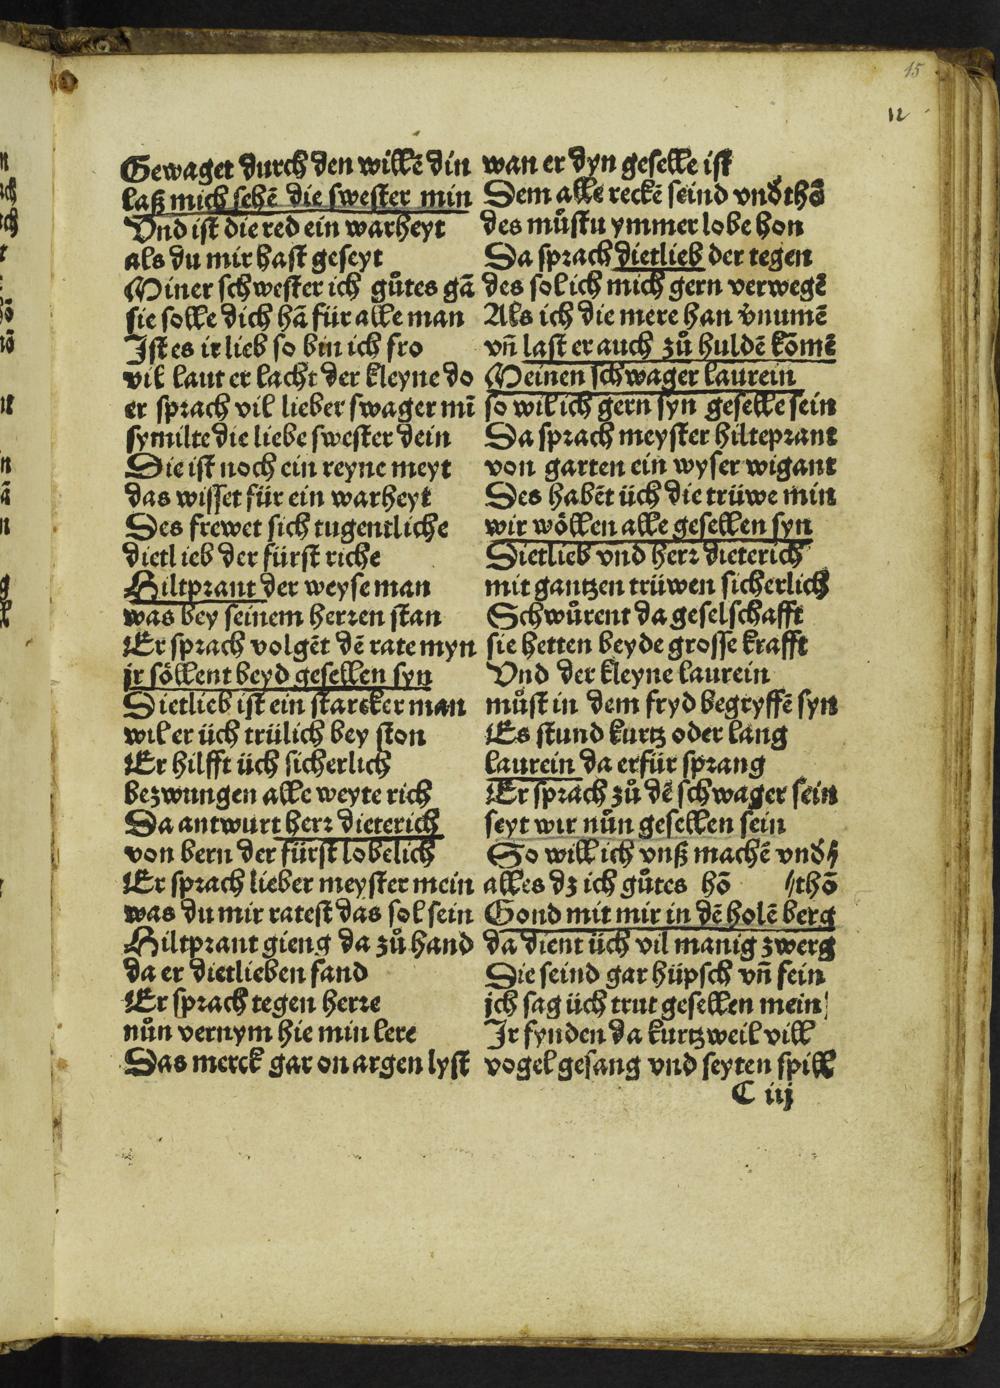 15
12
Gewaget durch den willē din
laß mich sehē die swester min
Vnd ist die red ein warheyt
als du mir hast geseyt
Miner schwester ich gůtes gā
sie solle dich hā für alle man
Ist es ir lieb so bin ich fro
vil laut er lacht der kleyne do
er sprach vil lieber swager mī
symilte die liebe swester dein
Die ist noch ein reyne meyt
das wisset für ein warheyt
Des frewet sich tugentliche
dietl ieb der fürst riche
Hiltprant der weyse man
was bey seinem herren stan
Er sprach volgēt dē rate myn
jr söllent beyd gesellen syn
Dietlieb ist ein starcker man
wil er üch trülich bey ston
Er hilfft üch sicherlich
bezwungen alle weyte rich
Da antwurt herr dieterich
von bern der fürst lobelich
Er sprach lieber meyster mein
was du mir ratest das sol sein
Hiltprant gieng da zů hand
da er dietlieben fand
Er sprach tegen herre
nůn vernym hie min lere
Das merck gar on argen lyst
wan er dyn geselle ist
Dem alle reckē seind vnd̄ thā
des můstu ymmer lobe hon
Da sprach dietlieb der tegen
des sol ich mich gern verwegē
Als ich die mere han v̄numē
vn̄ last er auch zů huldē komē
Meinen schwager laurein
so wil ich gern syn geselle sein
Da sprach meyster hilteprant
von garten ein wyser wigant
Des habēt üch die trüwe min
wir wöllen alle gesellen syn
Dietlieb vnd herr dieterich
mit gantzen trüwen sicherlich
Schwůrent da geselschafft
sie hetten beyde grosse krafft
Vnd der kleyne laurein
můst in dem fryd begryffē syn
Es stund kurtz oder lang
laurein da erfür sprang
Er sprach zů dē schwager sein
seyt wir nůn gesellen sein
So will ich vnß machē vnd̄
alles dz ich gůtes hō thō
Gond mit mir in dē holē berg
da dient üch vil manig zwerg
Die seind gar hüpsch vn̄ fein
jch sag üch trut gesellen mein
Ir fynden da kurtzweil vill
vogel gesang vnd seyten spill
C iij